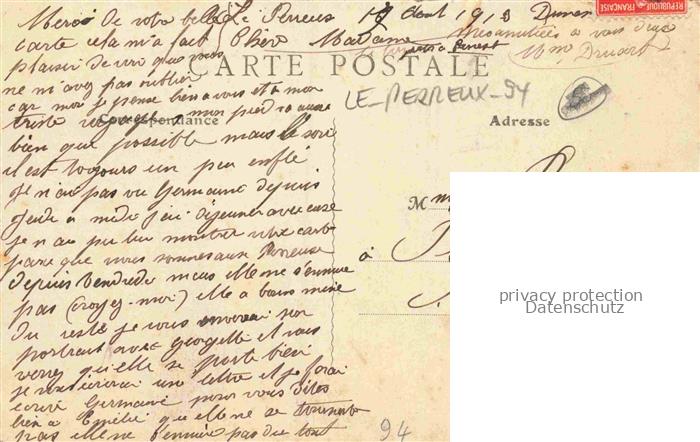 Merci de votre belle
carte cela m'a fait
plaisir de voir que vous
ne m'avez pas oublier
car moi je pense bien a vous et a mon
triste voyage mon pied va aussi
bien que possible mais le soir
il est toujours un peu enflé
je n'ai pas vu Germaine depuis
jeudi a midi j'ai déjeuner avec
je n'ai pu lui montrer votre carte
parce que nous sommes aux Perreux
depuis vendredi mais elle ne s'ennuie
pas (croyez-moi) elle a bonne mine
du reste je vous enverrai son
portrait avec georgette et vous
verrez qu'elle se porte bien
je vous écrirai une lettre et je ferai
écrire Germaine pour vous dites
bien a Emélie que elle ne se tourmente
pas elle ne s'ennuie pas du tout
Le Perreux 17 Aout 1913
Chère Madame
Mes amitiées a vous deux
Mme Druart
CARTE POSTALE
LE-PERREUX-94
Correspondance
Adresse
M
à
94
REPUBLIQUE FRANÇAISE
privacy protection
Datenschutz